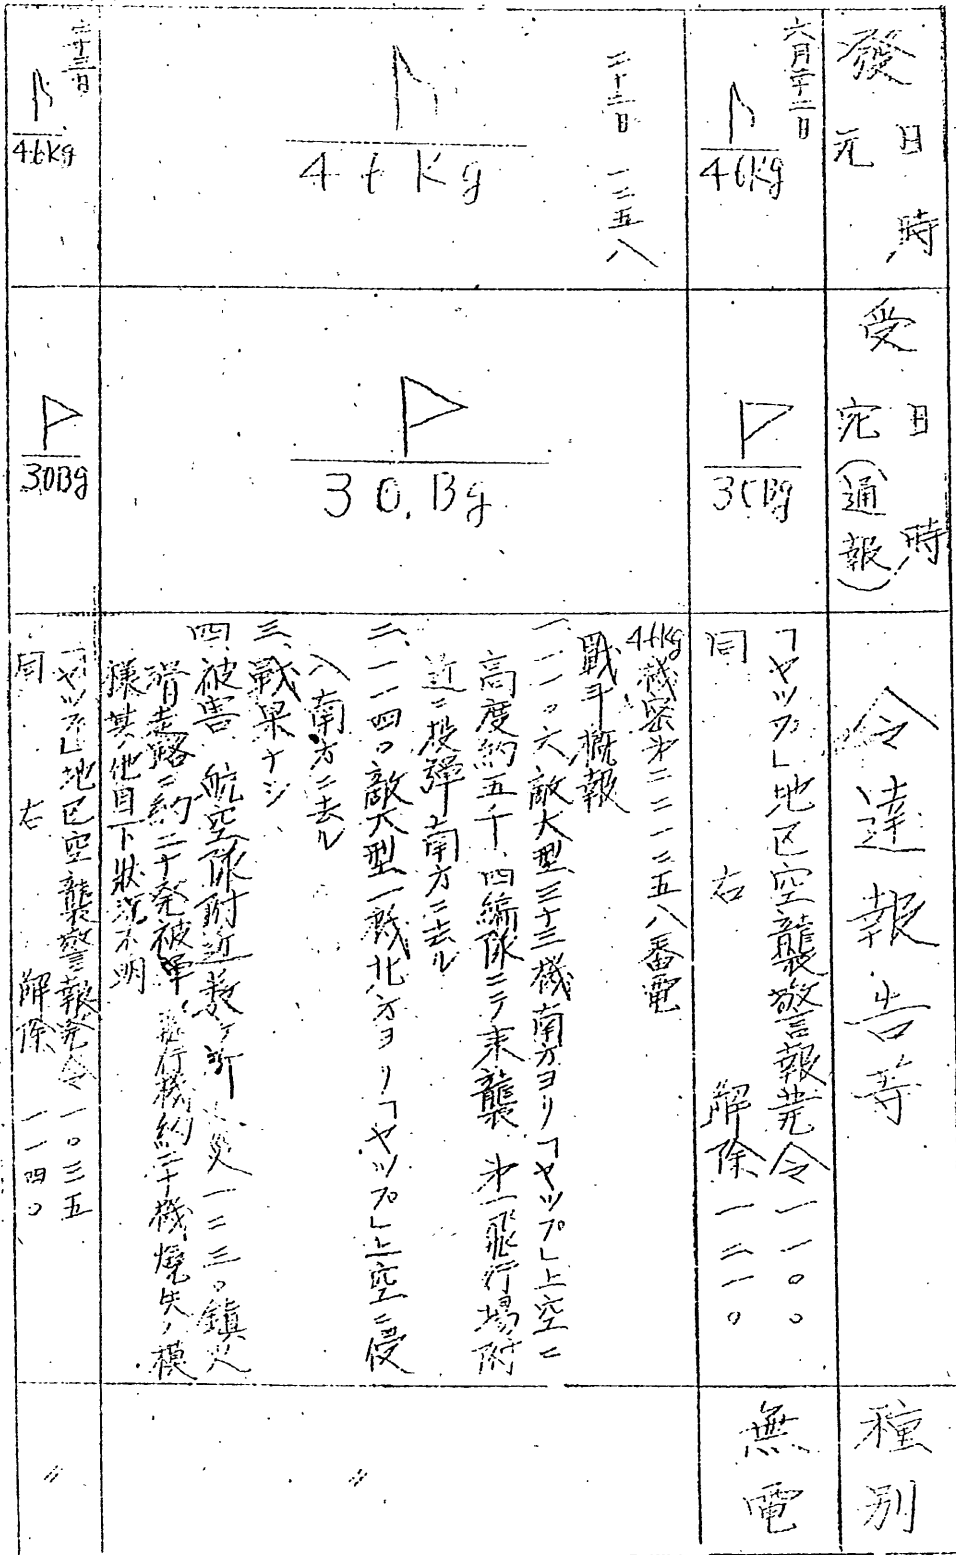 發元 日時
受宛(通報) 日時
令達報告等
種別
六月二十二日
46Kg
30Bg
「ヤップ」地区空襲警報発令一一〇〇
同右解除一二一〇
無電
二十二日 一二五八
46Kg
30.Bg
46Kg機密第二二一二五八番電
戦斗概報
一、一一〇六敵大型三十三機南方ヨリ「ヤップ」上空ニ
高度約五千、四編隊ニテ来襲 第一飛行場附
近ニ投弾南方ニ去ル
二、一一四〇敵大型一機北方ヨリ「ヤップ」上空ニ侵
入南方ニ去ル
三、戦果ナシ
四、被害 航空隊附近数ヶ所火災一二三〇鎮火
滑走路ニ約二十発被弾、飛行機約二十機焼失ノ模
様其ノ他目下状況不明
〃
二十三日
46Kg
30Bg
「ヤップ」地区空襲警報発令一〇三五
同右解除一一四〇
〃